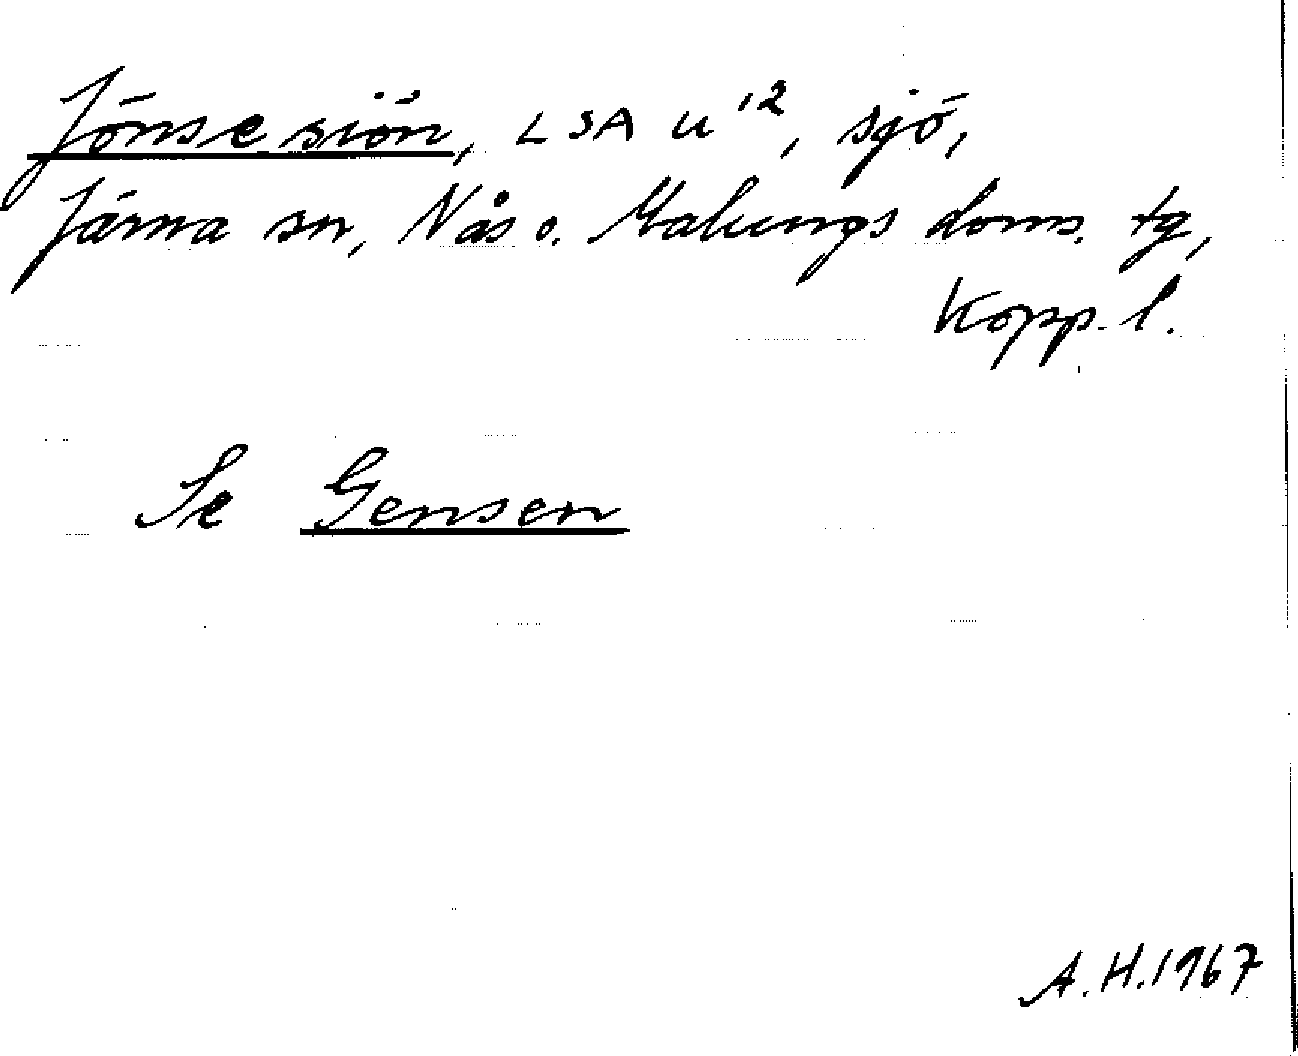 Jönse siön, LSA U'², sjö,
Järna sn, Nås o. Malungs doms. tg,
Kopp. l.
Se Gensen
A.H.1967